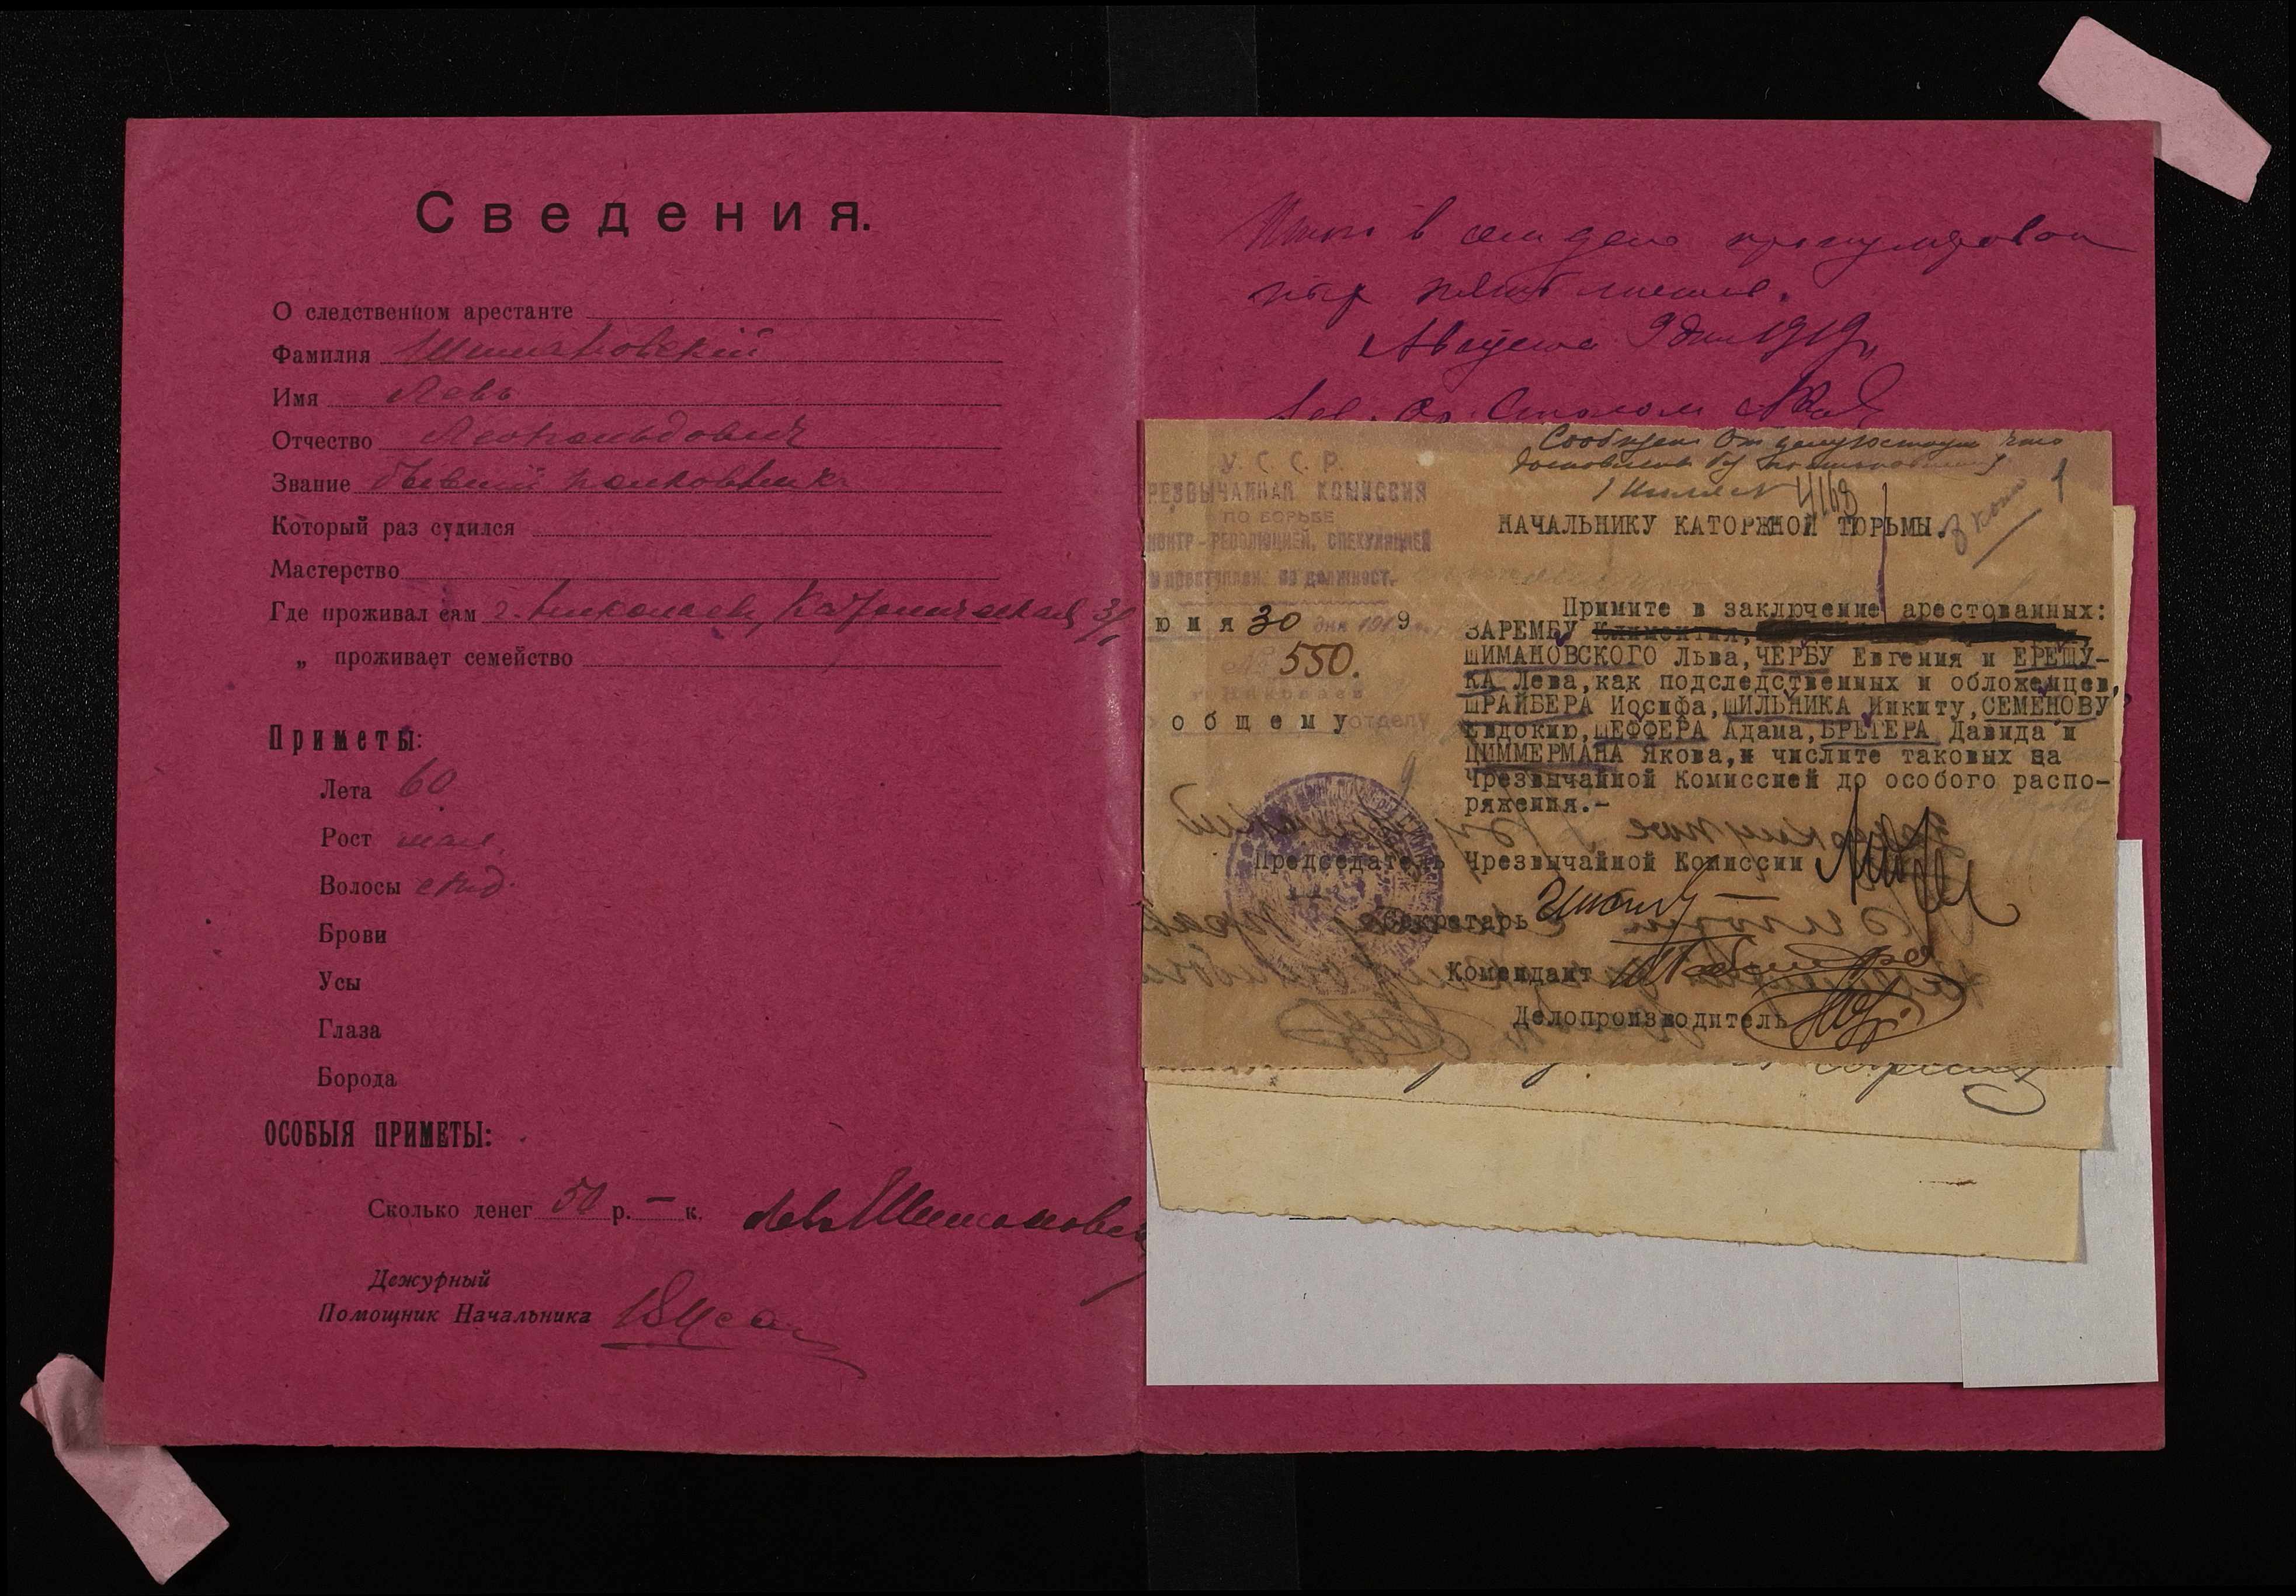 Сведения.
О следственном арестанте
Фамилия Шимановский
Имя Левъ
Отчество Леопольдович
Звание бывший полковникъ
Который раз судился
Мастерство
Где проживал сам г. Николаев, Католическая 31
„ проживает семейство
Приметы:
Лета 60
Рост мал.
Волосы сед.
Брови
Усы
Глаза
Борода
ОСОБЫЯ ПРИМЕТЫ:
Сколько денег 50 р. — к. Лев Шимановск
Дежурный
Помощник Начальника
Итого в сем деле пронумерован
пять листов.
Августа 9 дня 1919 г.
Столом
Сообщен что
1 4168
В 1
У. С. С. Р.
РЕЗВЫЧАЙНАЯ КОМИССИЯ
ПО БОРЬБЕ
КОНТР-РЕВОЛЮЦИЕЙ, СПЕКУЛЯЦИЕЙ
и преступлен. по должност.
юня 30 дня 1919
№ 550.
г. Николаев
общему отделу
НАЧАЛЬНИКУ КАТОРЖНОЙ ТЮРЬМЫ.
Примите в заключение арестованных:
ЗАРЕМБУ Климентия,
ШИМАНОВСКОГО Льва, ЧЕРБУ Евгения и ЕРЕЩУ-
КА Лева, как подследственных и обложенцев,
ШРАЙБЕРА Иосифа, ШИЛЬНИКА Никиту, СЕМЕНОВУ
Евдокию, ШЕФФЕРА Адама, БРЕГЕРА Давида и
ЦИММЕРМАНА Якова, и числите таковых за
Чрезвычайной Комиссией до особого распо-
ряжения.-
Председатель Чрезвычайной Комиссии
Секретарь
Комендант
Делопроизводитель